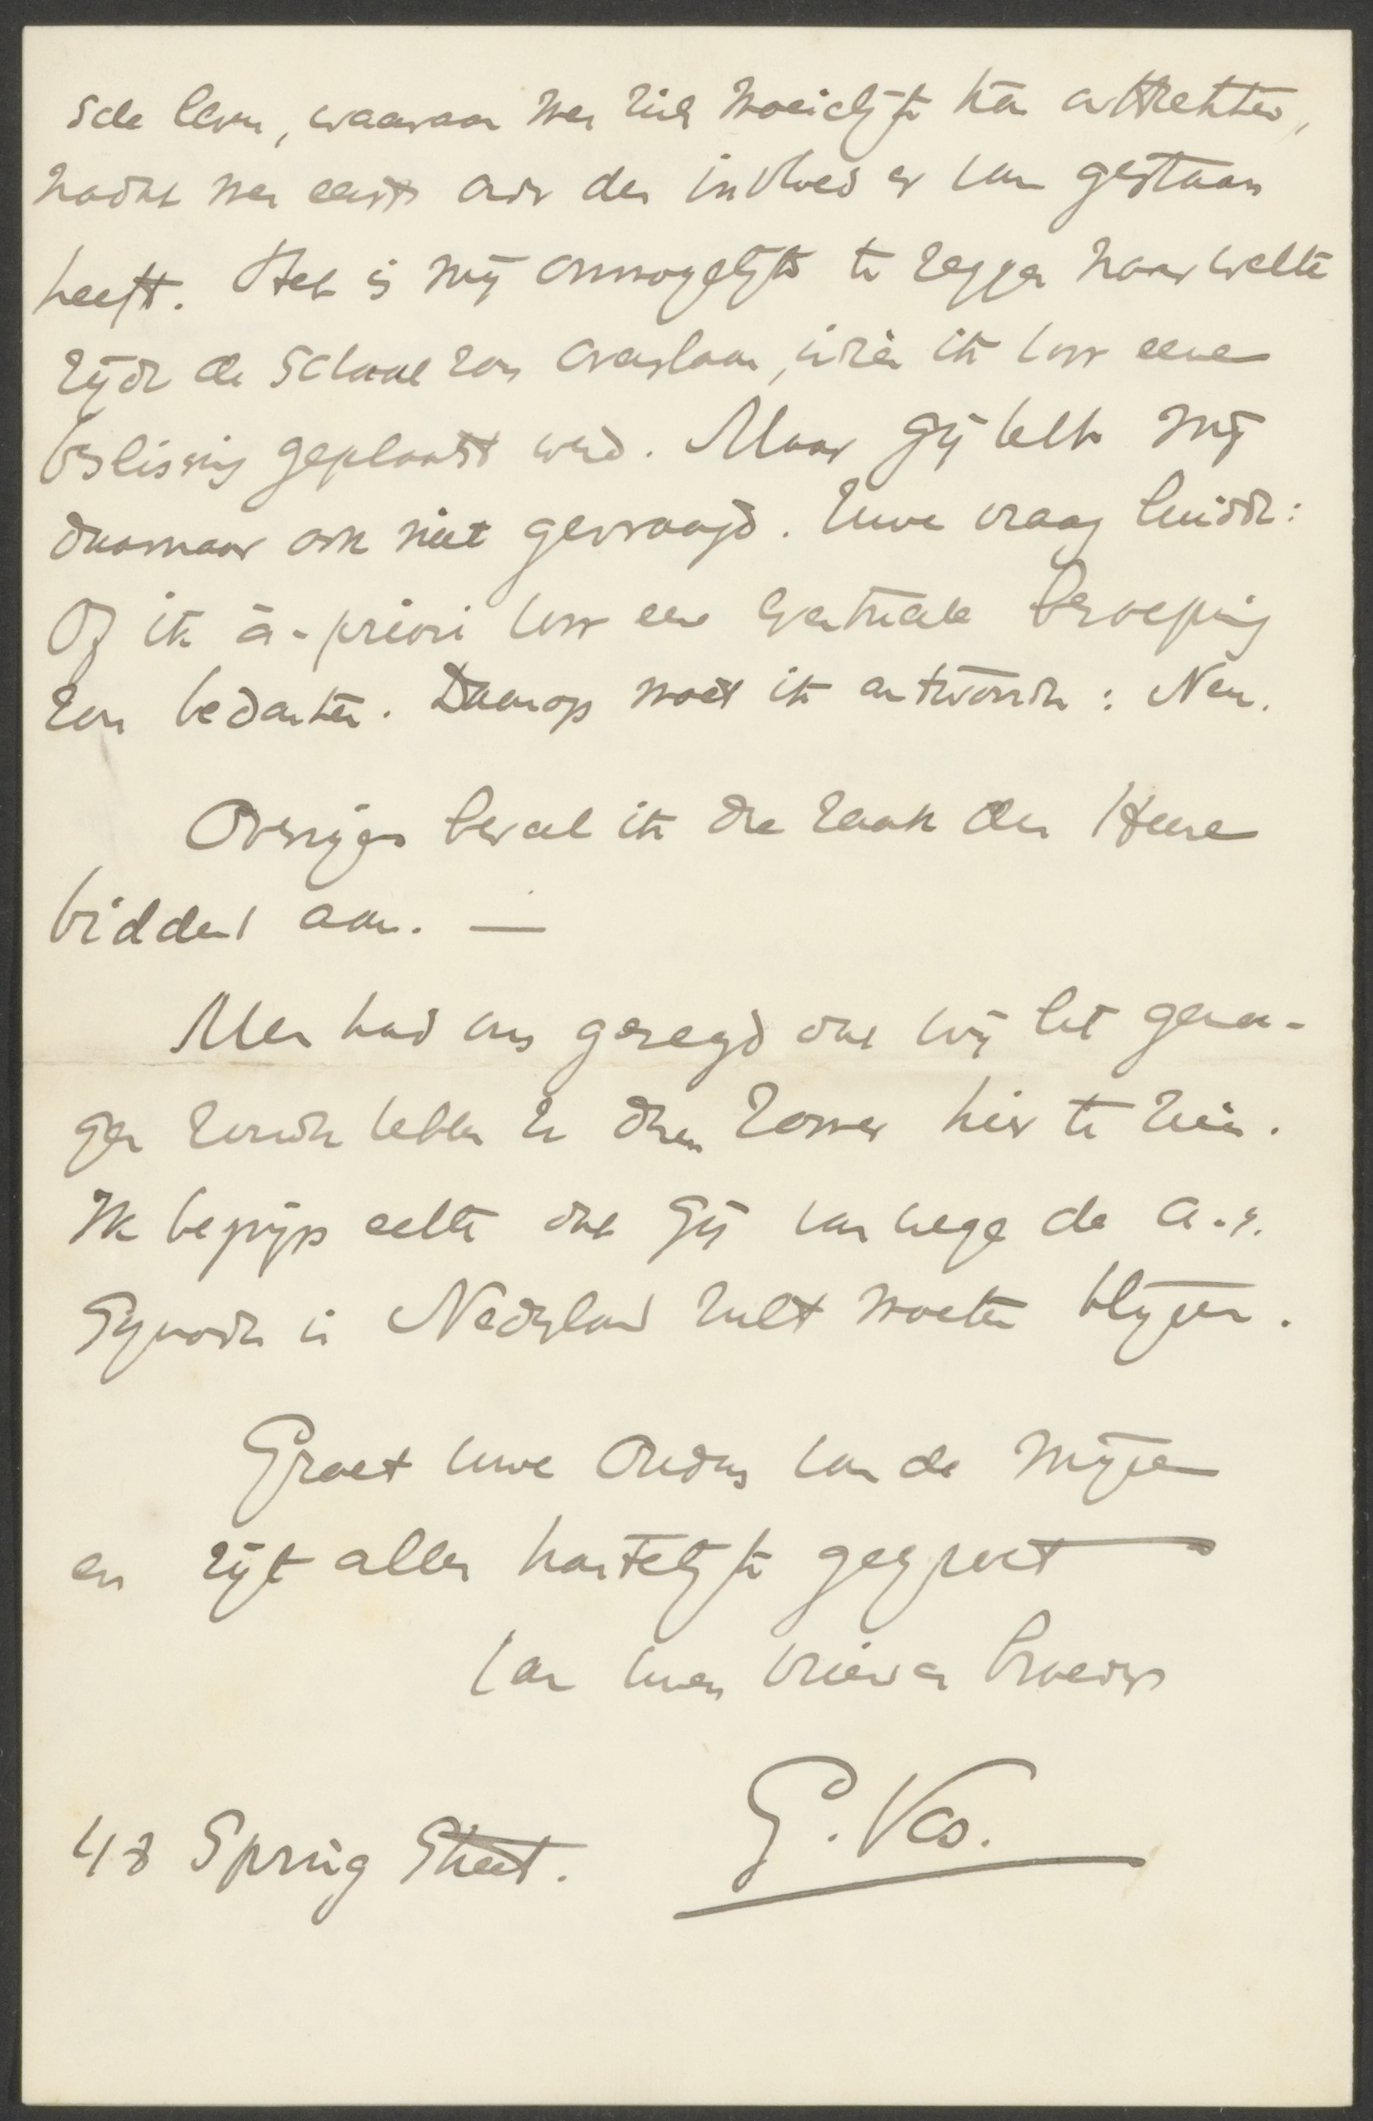 sche leven, waaraan men zich moeielijk kan onttrekken,
nadat men eens onder den invloed er van gestaan
heeft. Het is mij onmogelijk te zeggen naar welke
zijde de schaal zou overslaan, indien ik voor eene
beslissing geplaatst werd. Maar gij hebt mij
daarnaar ook niet gevraagd. Uwe vraag luidde:
Of ik à-priori voor eene eventueele beroeping
zou bedanken. Daarop moet ik antwoorden: Neen.
Overigens beveel ik die zaak den Heere
biddend aan. —
Men had ons gezegd dat wij het genoe-
gen zouden hebben U dezen zomer hier te zien.
Ik begrijp echter dat gij van wege de a.s.
Synode in Nederland zult moeten blijven.
Groet uwe Ouders van de mijnen
en zijt allen hartelijk gegroet
van uwen vriend en broeder
G. Vos.
48 Spring Street.